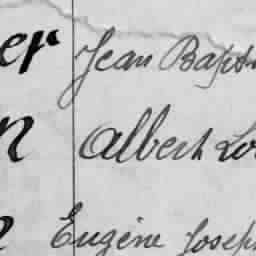 er Jean Bapti
n Albert Lo
Eugène Joseph